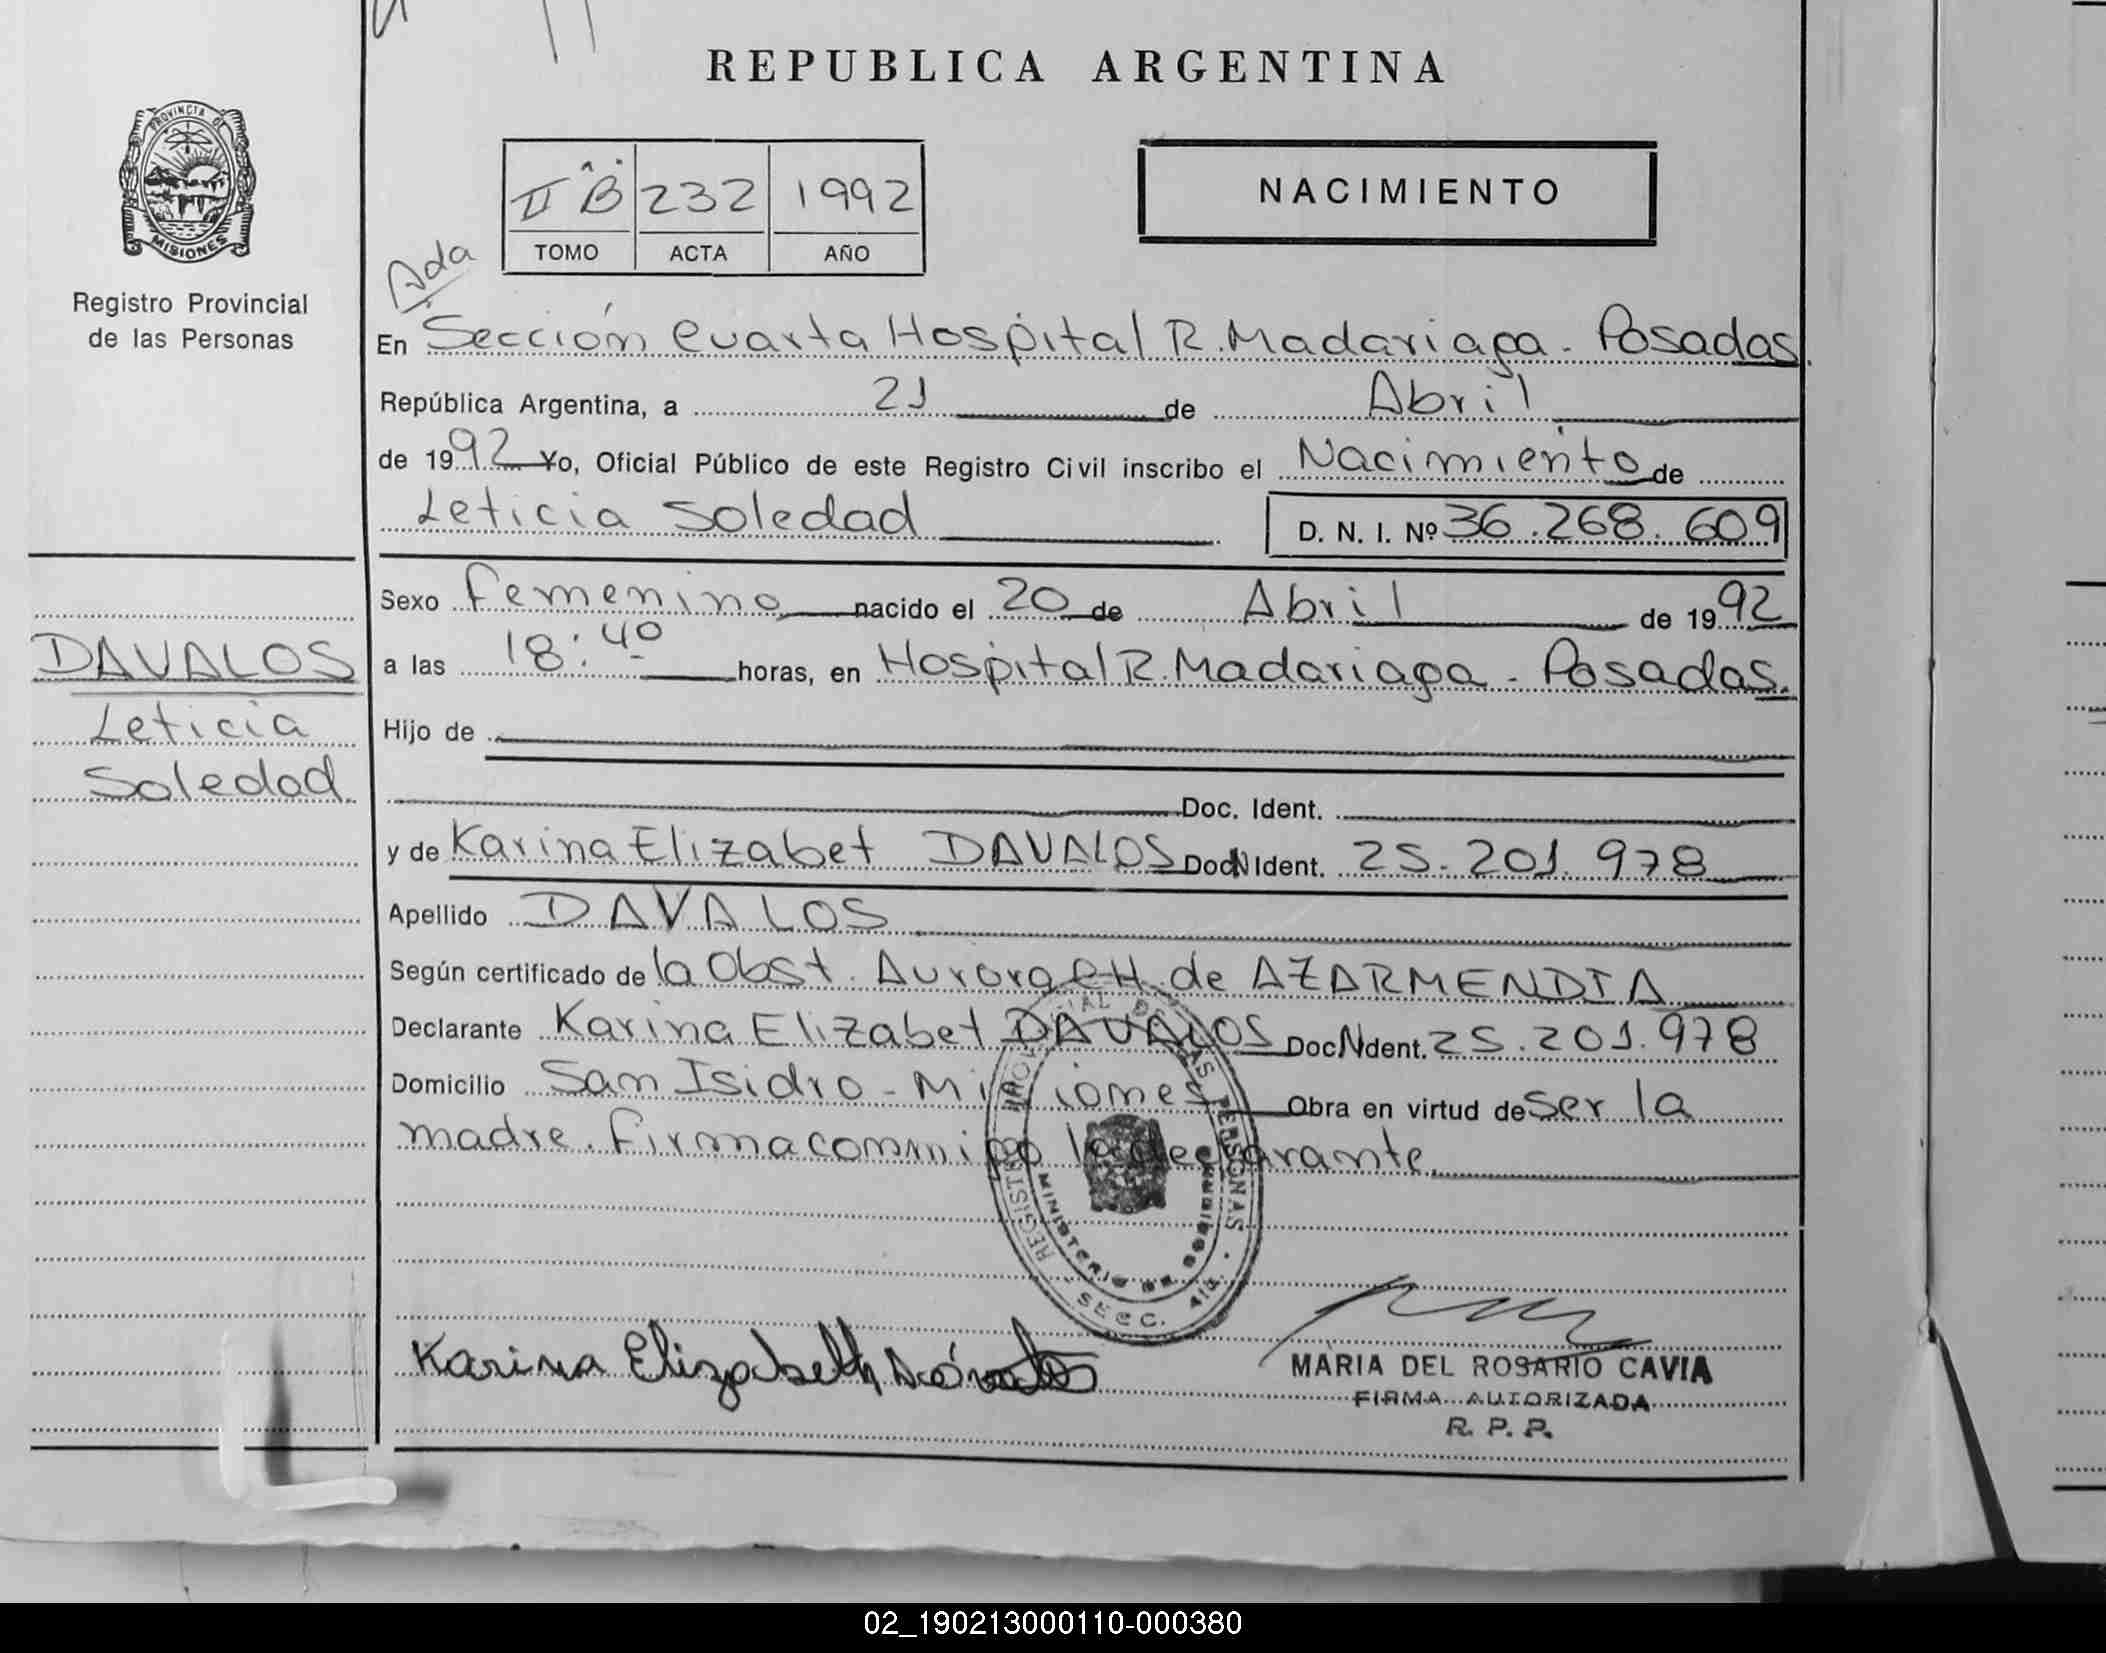 REPUBLICA ARGENTINA
PROVINCIA DE
MISIONES
Registro Provincial
de las Personas
II B 232 1992
TOMO ACTA AÑO
NACIMIENTO
Ada
En Sección Cuarta Hospital R. Madariaga - Posadas.
República Argentina, a 21 de Abril
de 1992 Yo, Oficial Público de este Registro Civil inscribo el Nacimiento de
Leticia Soledad D. N. I. Nº 36.268.609
Sexo Femenino nacido el 20 de Abril de 1992
DAVALOS
Leticia
Soledad
a las 18:40 horas, en Hospital R. Madariaga - Posadas.
Hijo de
Doc. Ident.
y de Karina Elizabet DAVALOS Doc N Ident. 25.201.978
Apellido DAVALOS
Según certificado de la Obst. Aurora CH. de AZARMENDIA
Declarante Karina Elizabet DAVALOS Doc N Ident. 25.201.978
Domicilio San Isidro - Misiones Obra en virtud de ser la
madre. Firma conmigo la declarante.
REGISTRO PROVINCIAL DE LAS PERSONAS
MINISTERIO DE GOBIERNO
SECC. 4ta.
Karina Elizabeth Dávalos
MARIA DEL ROSARIO CAVIA
FIRMA AUTORIZADA
R. P. P.
02_190213000110-000380